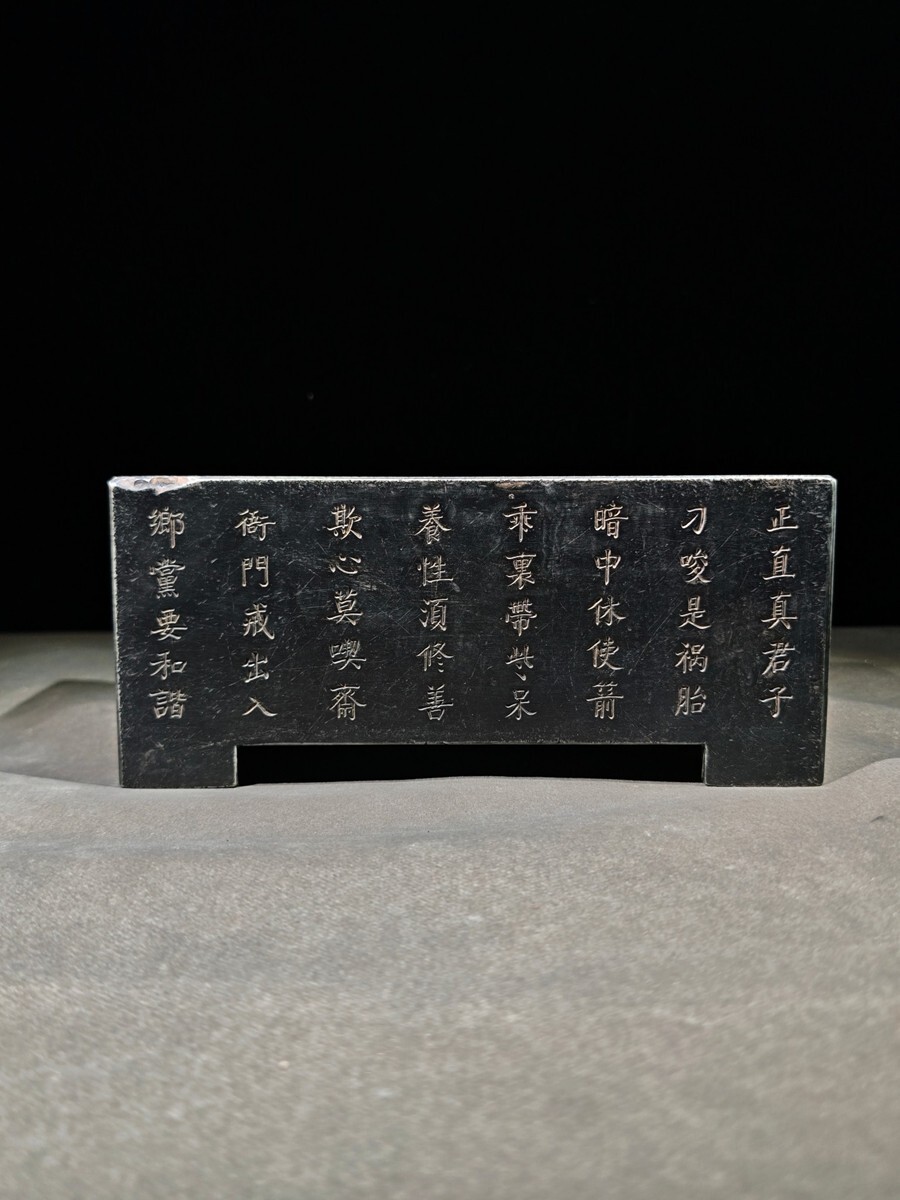 正直真君子
刁唆是祸胎
暗中休使箭
乖裏帶些呆
養性須修善
欺心莫喫齋
衙門戒出入
鄉黨要和諧